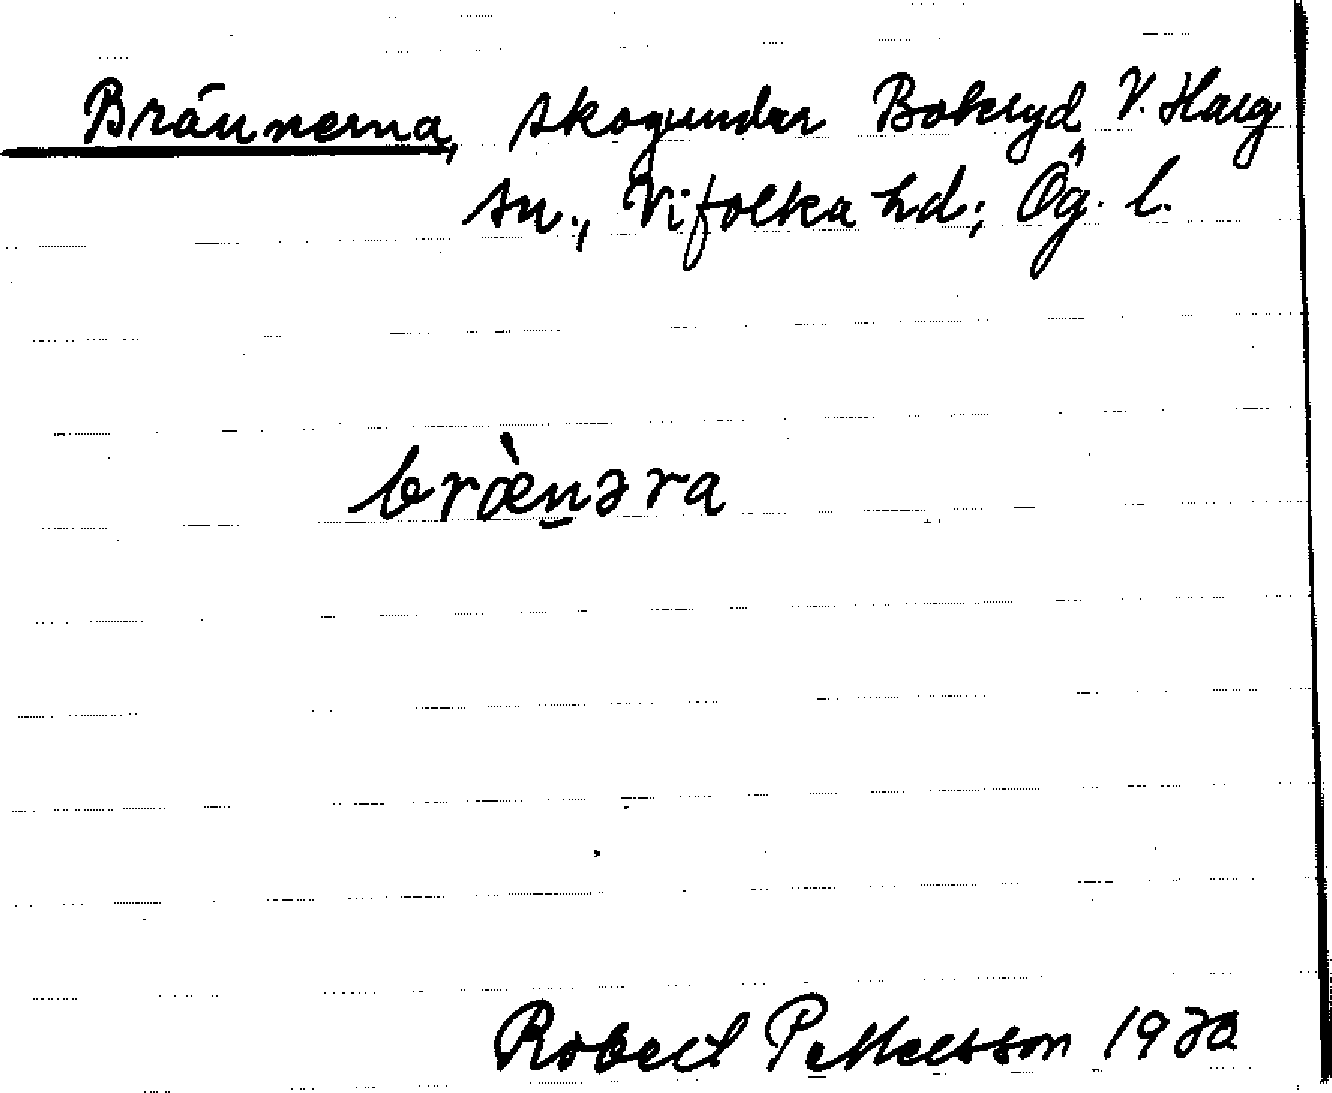 Brännerna, skog under Bokryd, V. Harg
sn., Vifolka hd; Ög. l.
bræ̀n̠əra
Robert Pettersson 1930